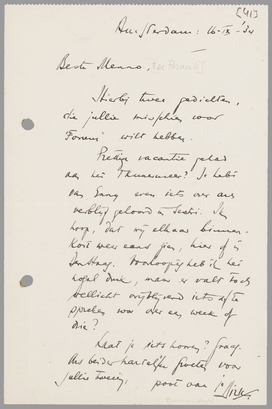 [41]
Amsterdam: 16-IX-'34
Beste Menno, [ter Braak]
Hierbij twee gedichten,
die jullie misschien voor
Forum wilt hebben.
Prettige vacantie gehad
aan het Thunermeer? Je hebt
van Sanny even iets over ons
verblijf gehoord in Sestri. Ik
hoop, dat wij elkaar binnen-
kort weer eens zien, hier of in
Den Haag. Voorloopig heb ik het
nogal druk, maar er valt toch
wellicht vrijblijvend iets af te
spreken voor over een week of
drie?
Laat je iets hooren? Graag.
Ons beider hartelijke groeten voor
jullie tweeën, poot van